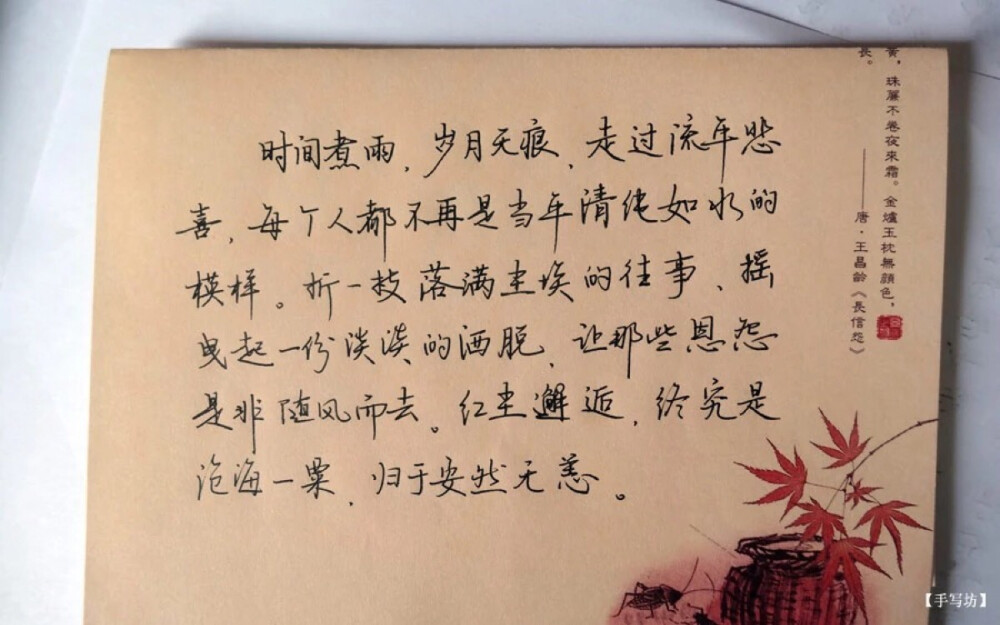 时间煮雨，岁月无痕，走过流年悲
喜，每个人都不再是当年清纯如水的
模样。折一枝落满尘埃的往事，摇
曳起一份淡淡的洒脱，让那些恩怨
是非随风而去。红尘邂逅，终究是
沧海一粟，归于安然无恙。
黄，珠簾不卷夜來霜。金爐玉枕無顔色，
長。
——唐·王昌齡《長信怨》
【手写坊】